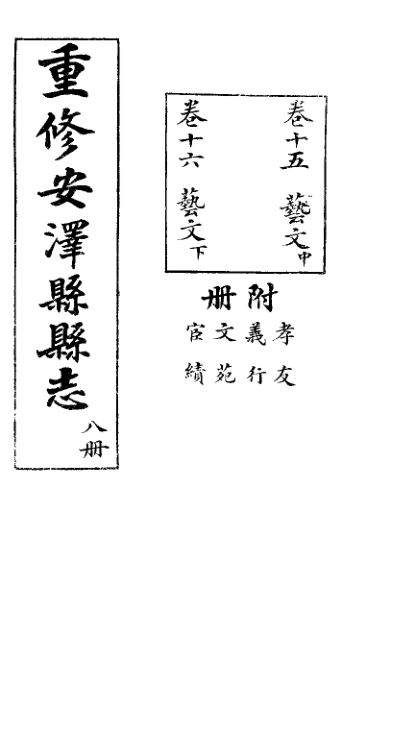 重修安澤縣縣志
八册
卷十五 藝文中
卷十六 藝文下
附册
孝友
義行
文苑
宦績